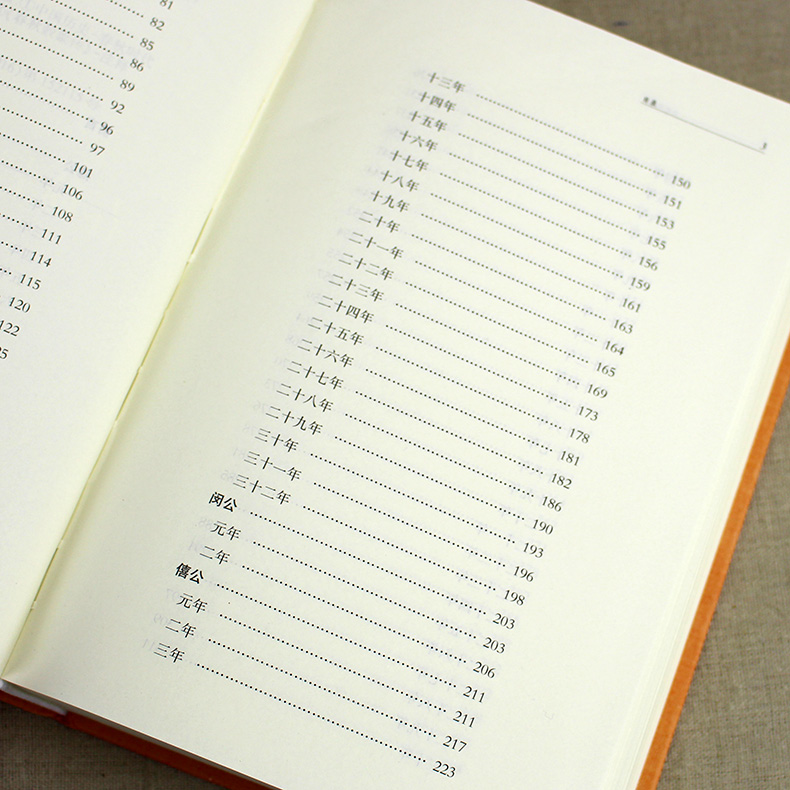 81
82
85
86
89
92
96
97
101
106
108
111
114
115
120
122
25
目录 3
十三年 150
十四年 151
十五年 153
十六年 155
十七年 156
十八年 159
十九年 161
二十年 163
二十一年 164
二十二年 165
二十三年 169
二十四年 173
二十五年 178
二十六年 181
二十七年 182
二十八年 186
二十九年 190
三十年 193
三十一年 196
三十二年 198
闵公 203
元年 203
二年 206
僖公 211
元年 211
二年 217
三年 223